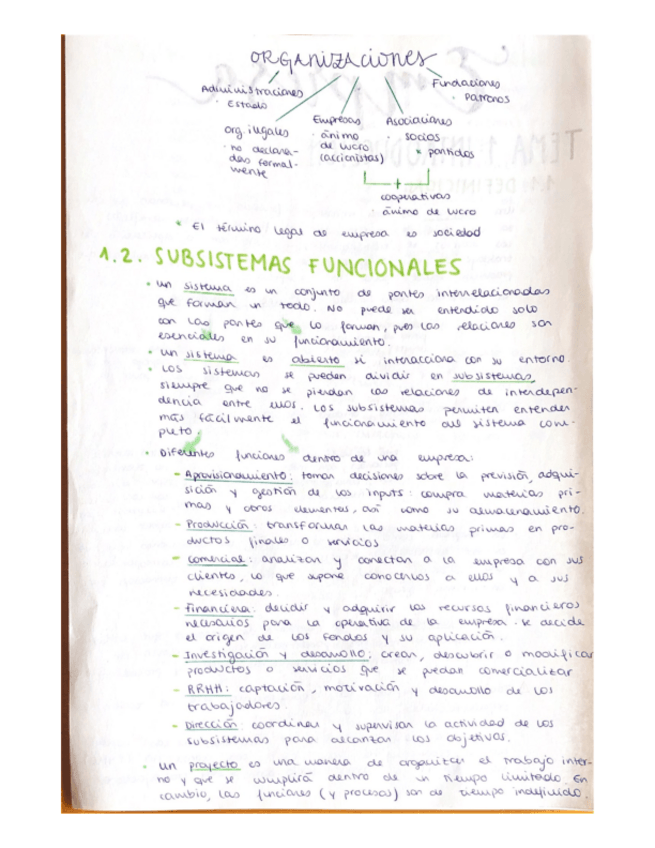 ORGANIZACIONES
Administraciones
· Estado
org ilegales
· no declara-
das formal-
mente
Empresas
· ánimo
de lucro
(accionistas)
Asociaciones
· socios
* partidos
Fundaciones
· Patronos
+
cooperativas
· ánimo de lucro
* El término legal de empresa es sociedad
1.2. SUBSISTEMAS FUNCIONALES
• un sistema es un conjunto de partes interrelacionadas
que forman un todo. No puede ser entendido solo
con las partes que lo forman, pues las relaciones son
esenciales en su funcionamiento.
• un sistema es abierto si interacciona con su entorno.
• Los sistemas se pueden dividir en subsistemas,
siempre que no se pierdan las relaciones de interdepen-
dencia entre ellos. Los subsistemas permiten entender
más fácilmente el funcionamiento del sistema com-
pleto.
• Diferentes funciones dentro de una empresa:
- Aprovisionamiento: tomar decisiones sobre la previsión, adqui-
sición y gestión de los inputs: compra materias pri-
mas y otros elementos, así como su almacenamiento.
- Producción: transformar las materias primas en pro-
ductos finales o servicios
- comercial: analizan y conectan a la empresa con sus
clientes, lo que supone conocerlos a ellos y a sus
necesidades.
- financiera: decidir y adquirir los recursos financieros
necesarios para la operativa de la empresa. Se decide
el origen de los fondos y su aplicación.
- Investigación y desarrollo: crear, descubrir o modificar
productos o servicios que se puedan comercializar
- RRHH: captación, motivación y desarrollo de los
trabajadores.
- Dirección: coordinar y supervisar la actividad de los
subsistemas para alcanzar los objetivos.
• un proyecto es una manera de organizar el trabajo inter-
no y que se cumplirá dentro de un tiempo limitado. En
cambio, las funciones (y procesos) son de tiempo indefinido.